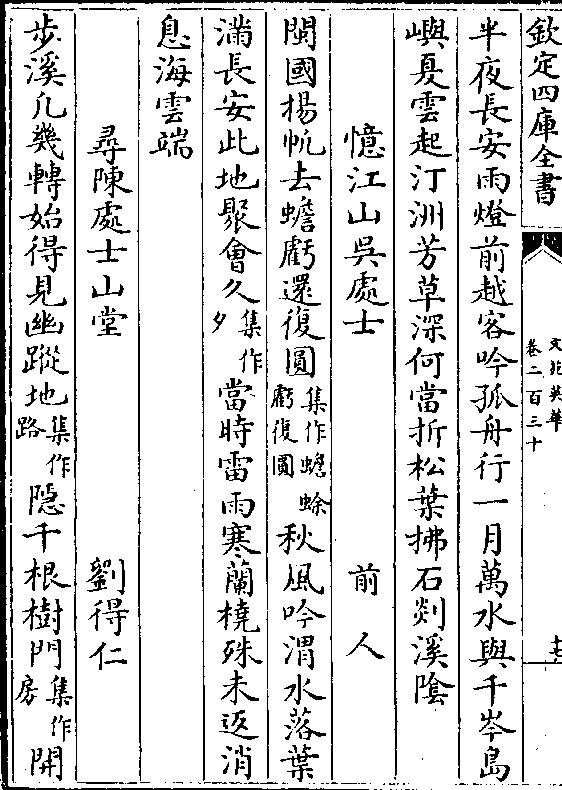 欽定四庫全書
文苑英華
卷二百三十
十七
半夜長安雨燈前越客吟孤舟行一月萬水與千岑島
嶼夏雲起汀洲芳草深何當折松葉拂石剡溪陰
憶江山吳處士 前人
閩國揚帆去蟾虧還復圓集作蟾蜍虧復圓秋風吟渭水落葉
滿長安此地聚會久集作夕當時雷雨寒蘭橈殊未返消
息海雲端
尋陳處士山堂 劉得仁
步溪凡幾轉始得見幽蹤地集作路隱千根樹門集作房開